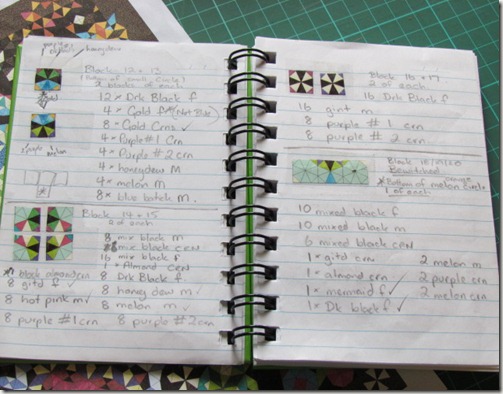 purple / honeydew
Block 12 + 13
2 blocks of each
12 x Drk Black f
4 x Gold f (Not Blue)
8 x Gold Crns ✓
4 x Purple #1 Crn
4 x Purple #2 crn
4 x honeydew M
4 x melon M
8 x blue batck M.
purple melon
Block 14 + 15
2 of each
8 mix black m
mix black CRN
16 mix black f
1 x Almond CRN
black almond crn
8 Drk Black f
8 gitd f ✓
8 honey dew m ✓
8 hot pink m ✓
8 melon m ✓
8 purple #1 crn
8 purple #2 crn
Block 16 + 17
2 of each
16 Drk Black f
16 gint m
8 purple #1 crn
8 purple #2 crn
Block 18/19/20
Bewitched
*Bottom of melon circle
1 of each
10 mixed black f
10 mixed black m
6 mixed black crn
1 x gitd crn
2 melon m
1 x almond crn
2 purple crn
1 x mermaid f ✓
2 melon crn
1 x Dk black f ✓